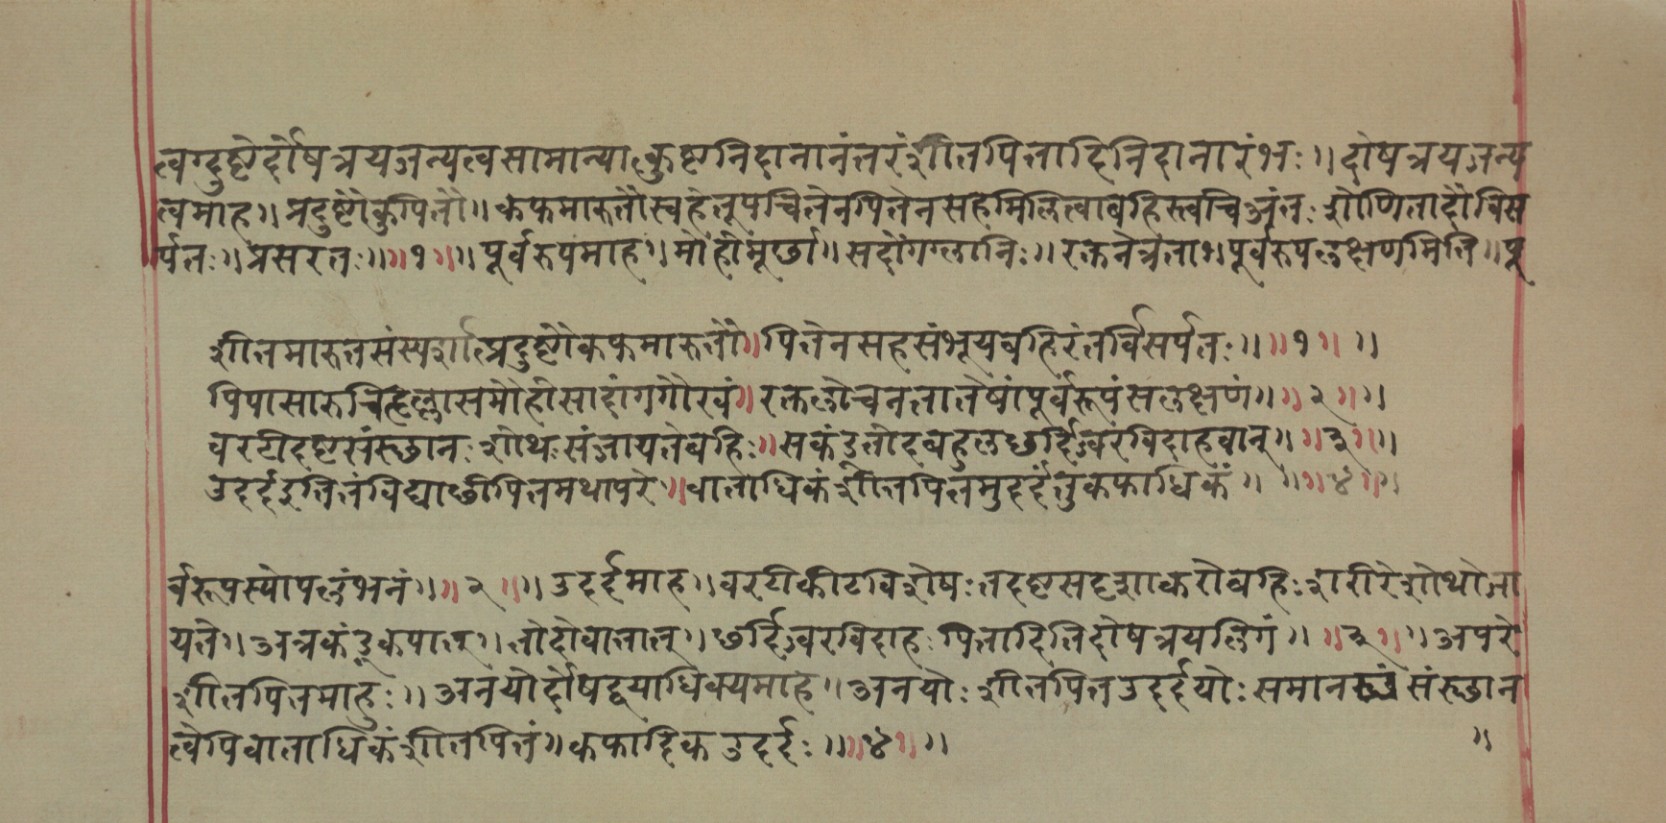 त्वग्दुष्टेर्दोषत्रयजन्यत्वसामान्यात्कुष्टनिदानानंतरंशीतपित्तादिनिदानारंभः ॥ दोषत्रयजन्य
त्वमाह ॥ प्रदुष्टौकुपितौ ॥ कफमारुतौस्वहेतूपचितेनपित्तेनसहमिलित्वाबहिस्त्वचिअंतःशोणितादौविस
र्पतः ॥ प्रसरतः ॥ ॥ १ ॥ ॥ पूर्वरुपमाह ॥ मोहोमूर्छा ॥ सदोंगग्लानिः ॥ रक्तनेत्रता ॥ पूर्वरुपलक्षणमिति ॥ पू
शीतमारुतसंस्पर्शात्प्रदुष्टौकफमारुतौ ॥ पित्तेनसहसंभूयबहिरंतर्विसर्पतः ॥ ॥ १ ॥ ॥
पिपासारुचिहृल्लासमोहोसादांगगौरवं ॥ रक्तलोचनतातेषांपूर्वरूपंसलक्षणं ॥ ॥ २ ॥ ॥
वरटीदष्टसंस्छानःशोथःसंजायतेबहिः ॥ सकंडुतोदबहुलछर्दिज्वरविदाहवान् ॥ ॥ ३ ॥ ॥
उदर्दइतितंविद्याछीपित्तमथापरे ॥ वाताधिकंशीतपित्तमुदर्दंतुकफाधिकं ॥ ॥ ॥ ४ ॥ ॥
र्वरूपस्योपलंभनं ॥ ॥ २ ॥ ॥ उदर्दमाह ॥ वरटीकीटविशेषःतदष्टसदृशाकरोबहिःशरीरेशोथोजा
यते ॥ अत्रकंडूकफात् ॥ तोदोवातात् ॥ छर्दिज्वरविदाहःपित्तादितिदोषत्रयलिंगं ॥ ॥ ३ ॥ ॥ अपरे
शीतपित्तमाहुः ॥ अनयोर्दोषद्वयाधिक्यमाह ॥ अनयोः शीतपित्तउदर्दयोः समानसंस्छान
त्वेपिवाताधिकंशीतपित्तं ॥ कफादिकउदर्दः ॥ ॥ ४ ॥ ॥ ॥